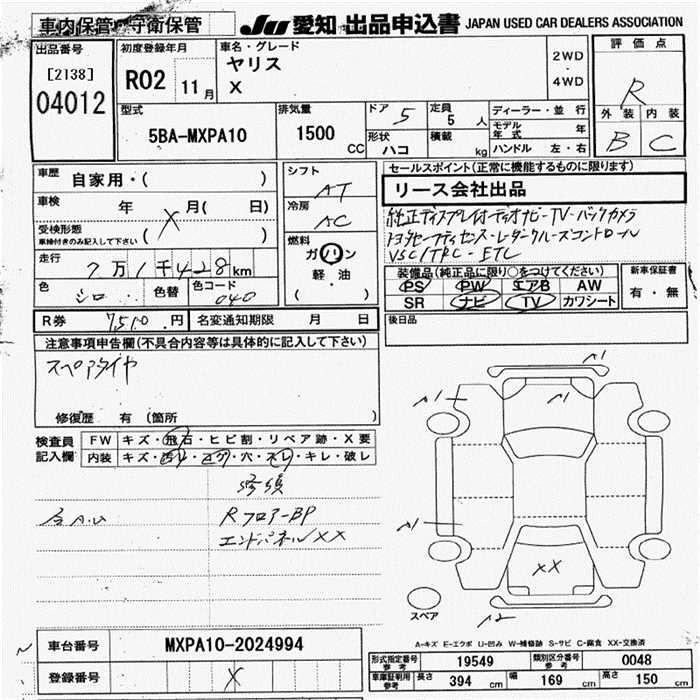 車内保管・守衛保管
JU 愛知 出品申込書 JAPAN USED CAR DEALERS ASSOCIATION
出品番号
[2138]
04012
初度登録年月
R02 11月
車名・グレード
ヤリス
X
2WD
・
4WD
評価点
R
外装 内装
B C
型式
5BA-MXPA10
排気量
1500 CC
ドア 5
形状 ハコ
定員 5 人
積載 kg
ディーラー・並行
モデル年式 年
ハンドル 左・右
車歴 自家用・( )
車検 年 月( 日)
X
受検形態
車検付きのみ記入して下さい ( )
走行 7万1千428km
色 シロ 色替 色コード 040
シフト AT
冷房 AC
燃料
ガソリン
軽・油
( )
セールスポイント(正常に機能するものに限ります)
リース会社出品
純正ディスプレイオーディオナビ-TV-バックカメラ
トヨタセーフティセンス-レーダークルーズコントロール
VSC/TRC-ETC
装備品(純正品に限り○をつけてください)
PS PW エアB AW
SR ナビ TV カワシート
新車保証書
有・無
R券 7510円 名変通知期限 月 日
後日品
注意事項申告欄(不具合内容等は具体的に記入して下さい)
スペアタイヤ
修復歴 有 (箇所 )
検査員記入欄
FW キズ・飛石・ヒビ割・リペア跡・X要
内装 キズ・汚レ・コゲ・穴・スレ・キレ・破レ
修頃
Rフロアー-BP
エンドパネルXX
A1
A1
A1
A1
XX
A2
スペア
A-キズ E-エクボ U-凹み W-補修跡 S-サビ C-腐食 XX-交換済
車台番号 MXPA10-2024994
登録番号 X
形式指定番号 参考 19549 類別区分番号 参考 0048
車庫証明用 参考 長さ 394 cm 幅 169 cm 高さ 150 cm